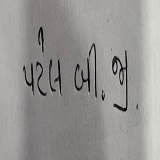 પટેલ બી. જી.